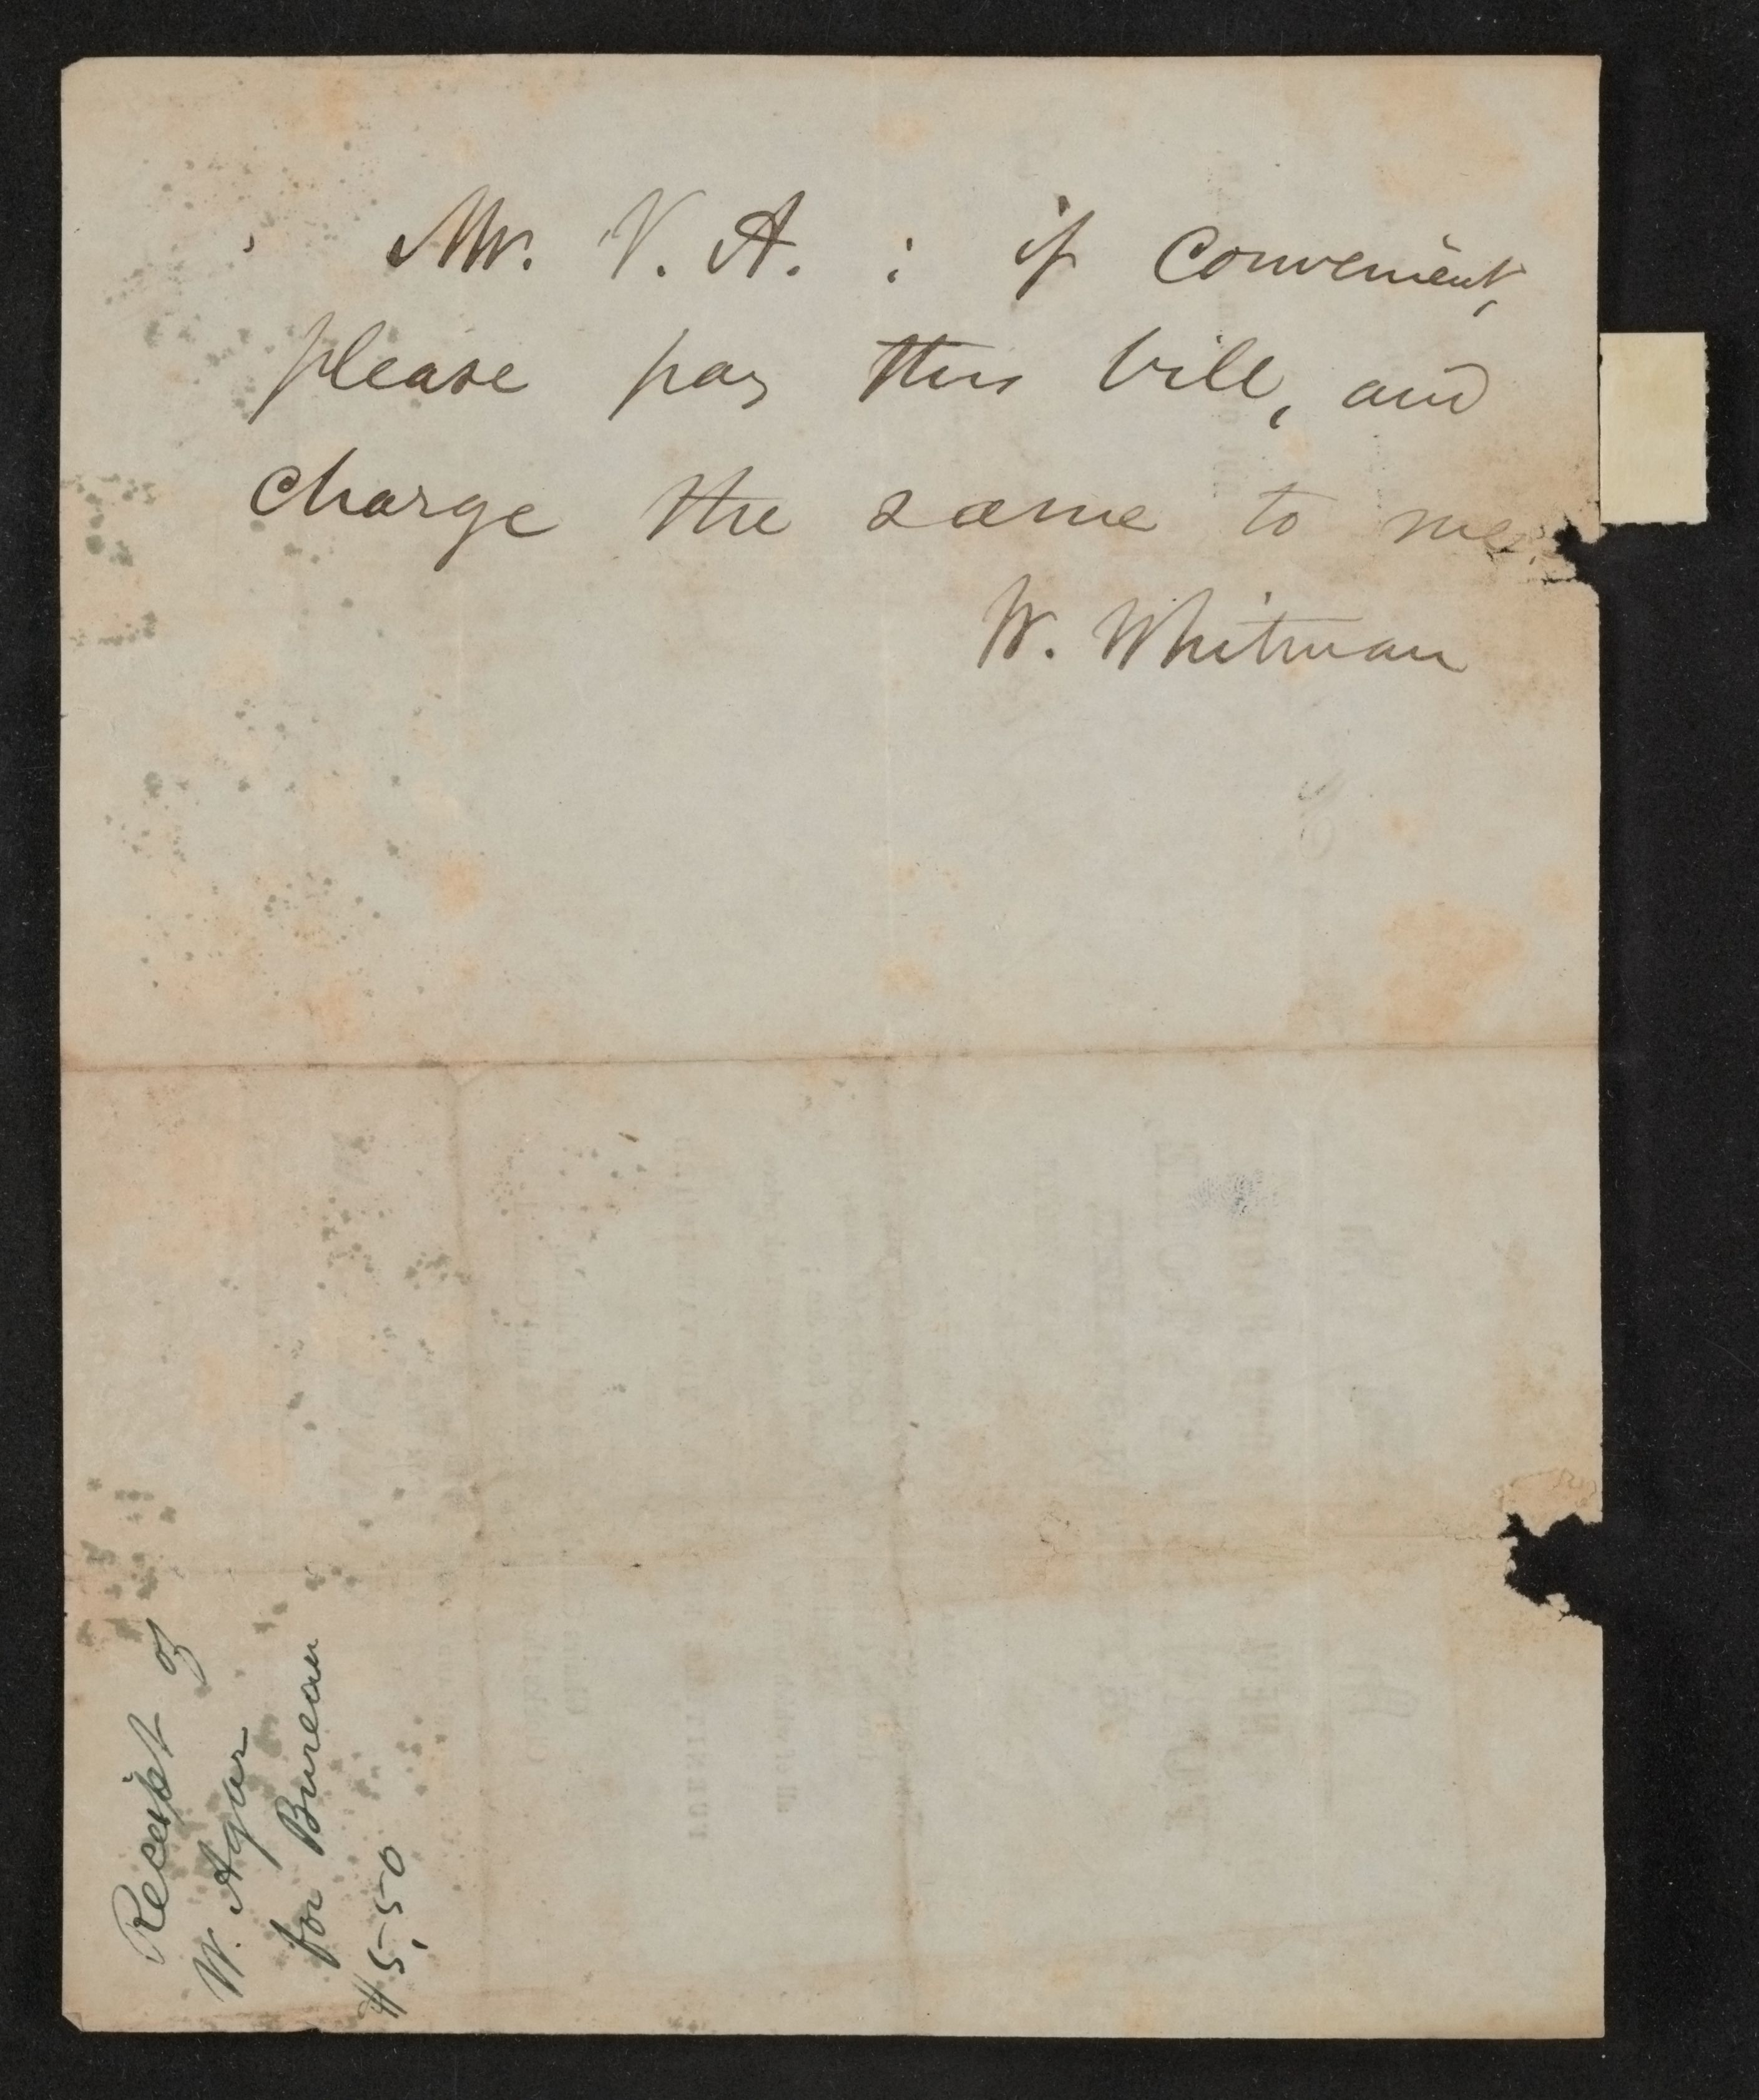 Mr. V. A. : if convenient,
please pay this bill, and
charge the same to me
W. Whitman
Receipt of
W. Agar
for Bureau
$5,50